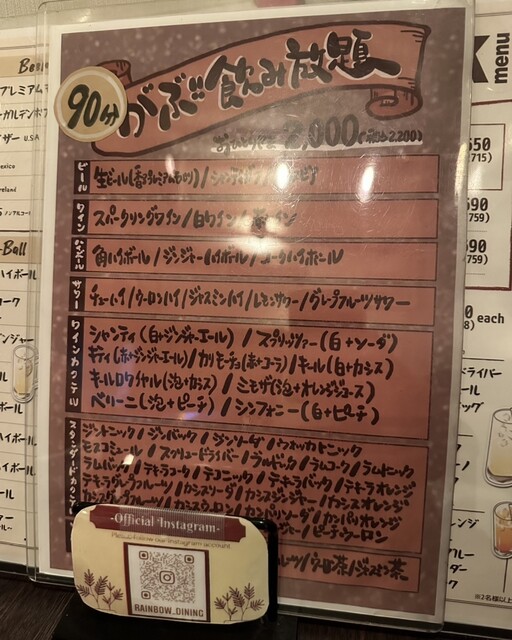 90分
がぶ飲み放題
2,000(税込2,200)
ビール
生ビール(香るプレミアムモルツ)/シャンディガフ/
ワイン
スパークリングワイン/白ワイン/赤ワイン
ハイボール
角ハイボール/ジンジャーハイボール/コークハイボール
サワー
チューハイ/ウーロンハイ/ジャスミンハイ/レモンサワー/グレープフルーツサワー
ワインカクテル
シャンティ(白+ジンジャーエール)/スプリッツァー(白+ソーダ)
キティ(赤+ジンジャーエール)/カリモーチョ(赤+コーラ)/キール(白+カシス)
キールロワイヤル(泡+カシス)/ミモザ(泡+オレンジジュース)
ベリーニ(泡+ピーチ)/シンフォニー(白+ピーチ)
スタンダードカクテル
ジントニック/ジンバック/ジンソーダ/ウォッカトニック
モスコミュール/スクリュードライバー/ブルドッグ/ラムコーク/ラムトニック
ラムバック/テキーラコーク/テコニック/テキーラバック/テキーラオレンジ
テキーラグレフルーツ/カシスソーダ/カシスジンジャー/カシスオレンジ
カシスグレープフルーツ/カシスウーロン/カンパリソーダ/カンパリオレンジ
ジャー/ピーチウーロン
ルーツ/ウーロン茶/ジャスミン茶
-Official Instagram-
Please follow our Instagram account
RAINBOW_DINING
menu
650
(715)
690
(759)
690
(759)
each
ドライバー
ッグ
ンジ
ーツ
クレー
ダー
ック
※2名様以上
プレミアム
ーガルデンホワ
イザー U.S.A
exico
reland
ノンアルコール
-Ball
ハイボール
ーク
ンジャー
ボール
ハイボール
ール